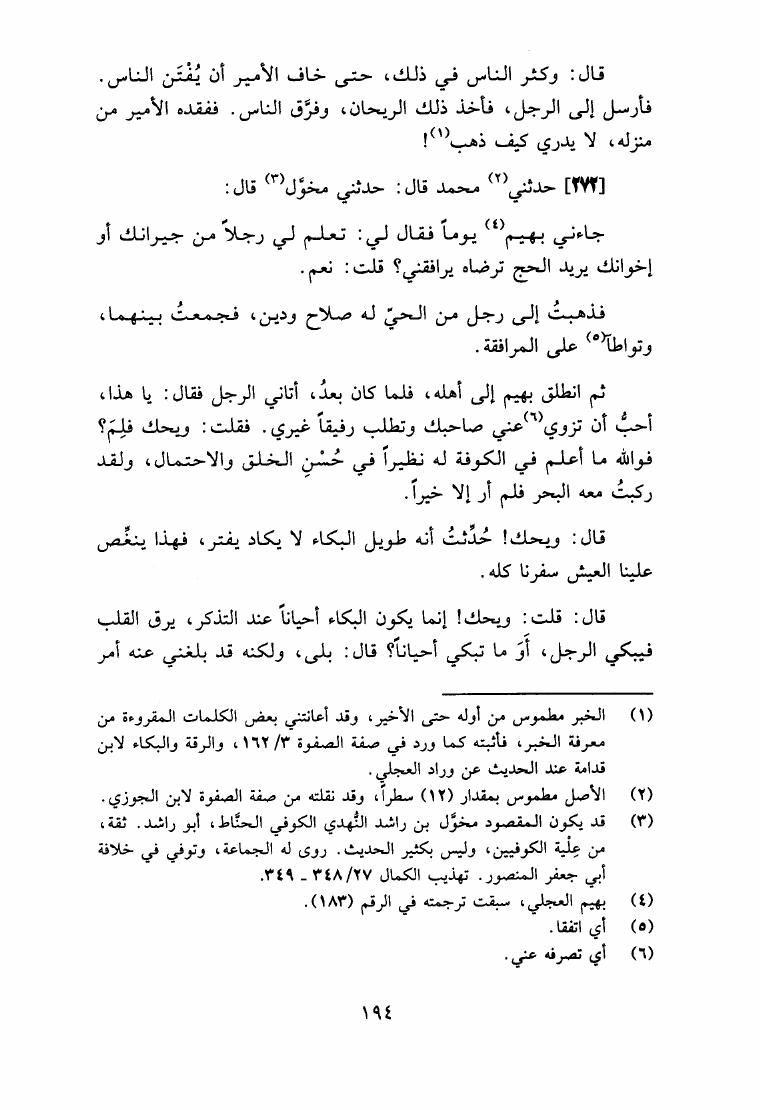 قال: وكثر الناس في ذلك، حتى خاف الأمير أن يُفْتَن الناس.
فأرسل إلى الرجل، فأخذ ذلك الريحان، وفرَّق الناس. ففقده الأمير من
منزله، لا يدري كيف ذهب(١)!
[٢٧٢] حدثني(٢) محمد قال: حدثني مخوَّل(٣) قال:
جاءني بهيم(٤) يوماً فقال لي: تعلم لي رجلاً من جيرانك أو
إخوانك يريد الحج ترضاه يرافقني؟ قلت: نعم.
فذهبتُ إلى رجل من الحيّ له صلاح ودين، فجمعتُ بينهما،
وتواطآ(٥) على المرافقة.
ثم انطلق بهيم إلى أهله، فلما كان بعدُ، أتاني الرجل فقال: يا هذا،
أحبُّ أن تزوي(٦) عني صاحبك وتطلب رفيقاً غيري. فقلت: ويحك فلِمَ؟
فوالله ما أعلم في الكوفة له نظيراً في حُسْنِ الخلق والاحتمال، ولقد
ركبتُ معه البحر فلم أر إلا خيراً.
قال: ويحك! حُدِّثتُ أنه طويل البكاء لا يكاد يفتر، فهذا ينغِّص
علينا العيش سفرنا كله.
قال: قلت: ويحك! إنما يكون البكاء أحياناً عند التذكر، يرق القلب
فيبكي الرجل، أَوَ ما تبكي أحياناً؟ قال: بلى، ولكنه قد بلغني عنه أمر
(١) الخبر مطموس من أوله حتى الأخير، وقد أعانتني بعض الكلمات المقروءة من
معرفة الخبر، فأثبته كما ورد في صفة الصفوة ٣/ ١٦٢، والرقة والبكاء لابن
قدامة عند الحديث عن وراد العجلي.
(٢) الأصل مطموس بمقدار (١٢) سطراً، وقد نقلته من صفة الصفوة لابن الجوزي.
(٣) قد يكون المقصود مخوَّل بن راشد النَّهدي الكوفي الحنَّاط، أبو راشد. ثقة،
من عِلْية الكوفيين، وليس بكثير الحديث. روى له الجماعة، وتوفي في خلافة
أبي جعفر المنصور. تهذيب الكمال ٢٧/ ٣٤٨ ـ ٣٤٩.
(٤) بهيم العجلي، سبقت ترجمته في الرقم (١٨٣).
(٥) أي اتفقا.
(٦) أي تصرفه عني.
١٩٤